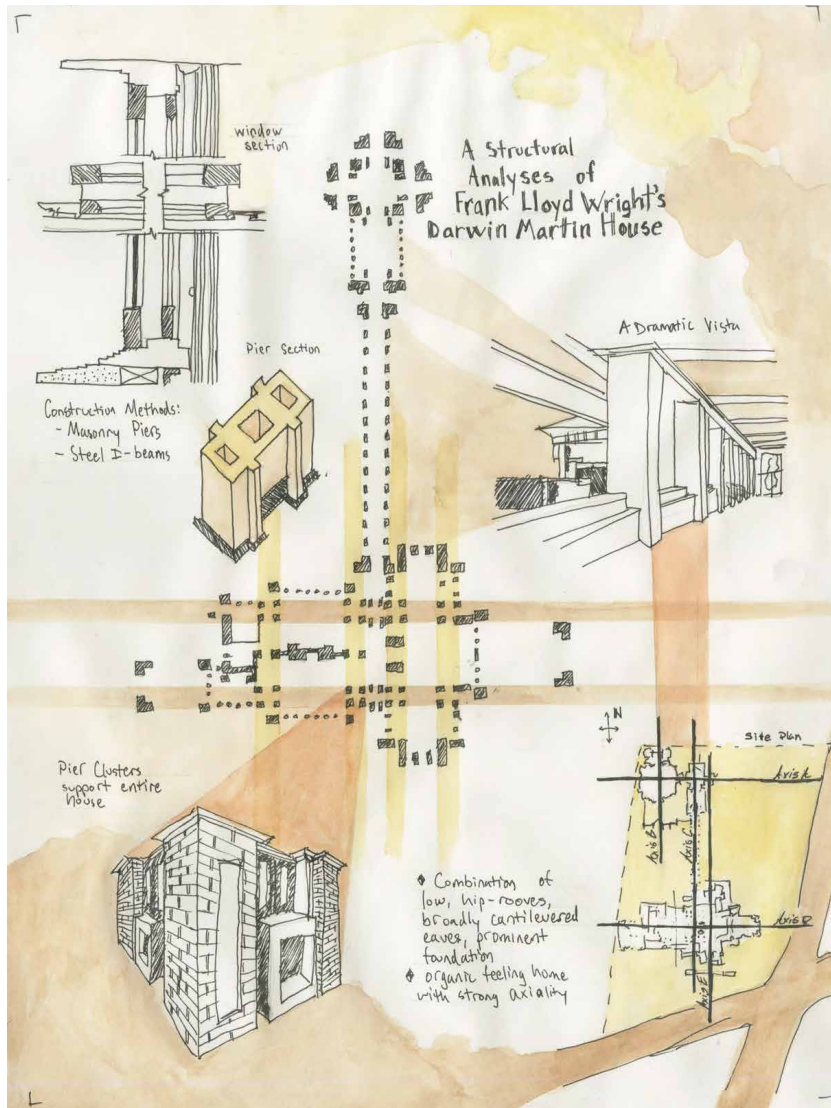 A Structural
Analyses of
Frank Lloyd Wright's
Darwin Martin House
window
section
Pier Section
Construction Methods:
- Masonry Piers
- Steel I-beams
A Dramatic Vista
N
Site Plan
Axis A
Axis B
Axis C
Axis D
Axis E
Pier Clusters
support entire
house
♦ Combination of
low, hip-rooves,
broadly cantilevered
eaves, prominent
foundation
♦ organic feeling home
with strong axiality